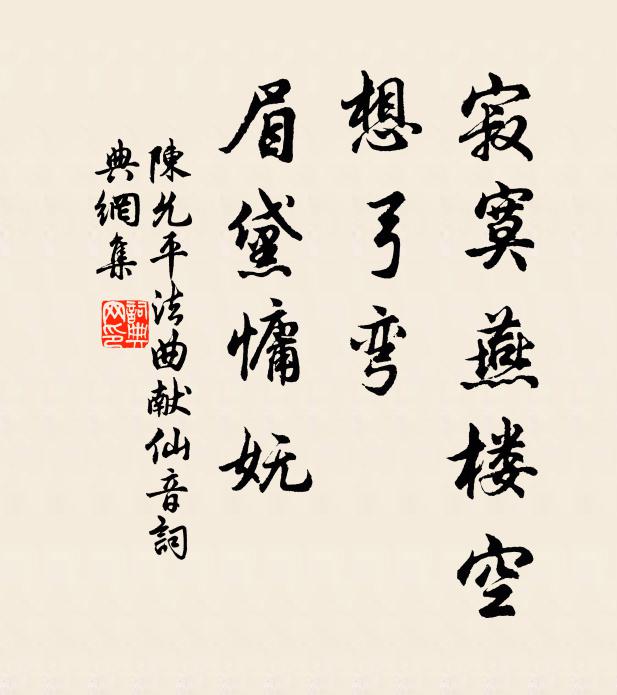 寂寞燕楼空
想弓弯
眉黛慵妩
陳允平法曲献仙音詞
典網集
詞典网印